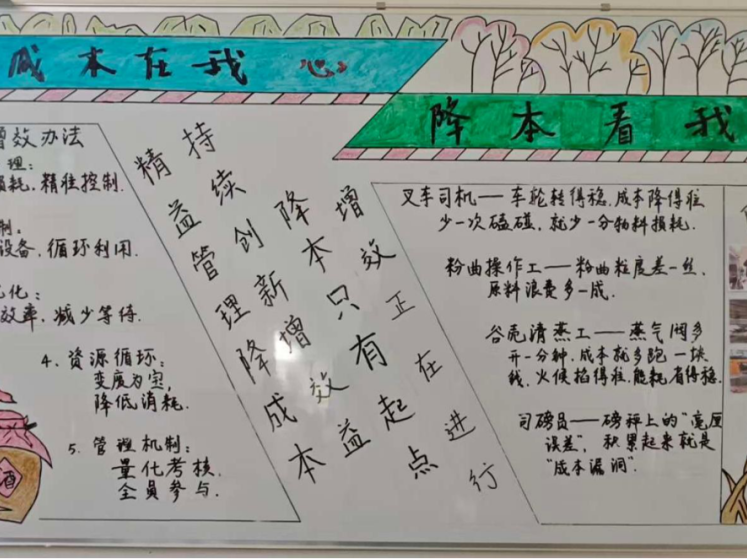 成本在我心
降本看我
增效办法
理:
损耗,精准控制.
制:
设备,循环利用.
优化:
效率,减少等待.
4. 资源循环:
变废为宝,
降低消耗.
5. 管理机制:
量化考核.
全员参与.
精益管理降成本
持续创新增效益
降本只有起点
增效正在进行
叉车司机——车轮转得稳,成本降得准
少一次磕碰,就少一分物料损耗.
粉曲操作工——粉曲粒度差一丝,
原料浪费多一成.
谷壳清蒸工——蒸气阀多
开一分钟,成本就多跑一块
钱,火候掐得准,能耗省得稳.
司磅员——磅秤上的"毫厘
误差",积累起来就是
"成本漏洞".
酒